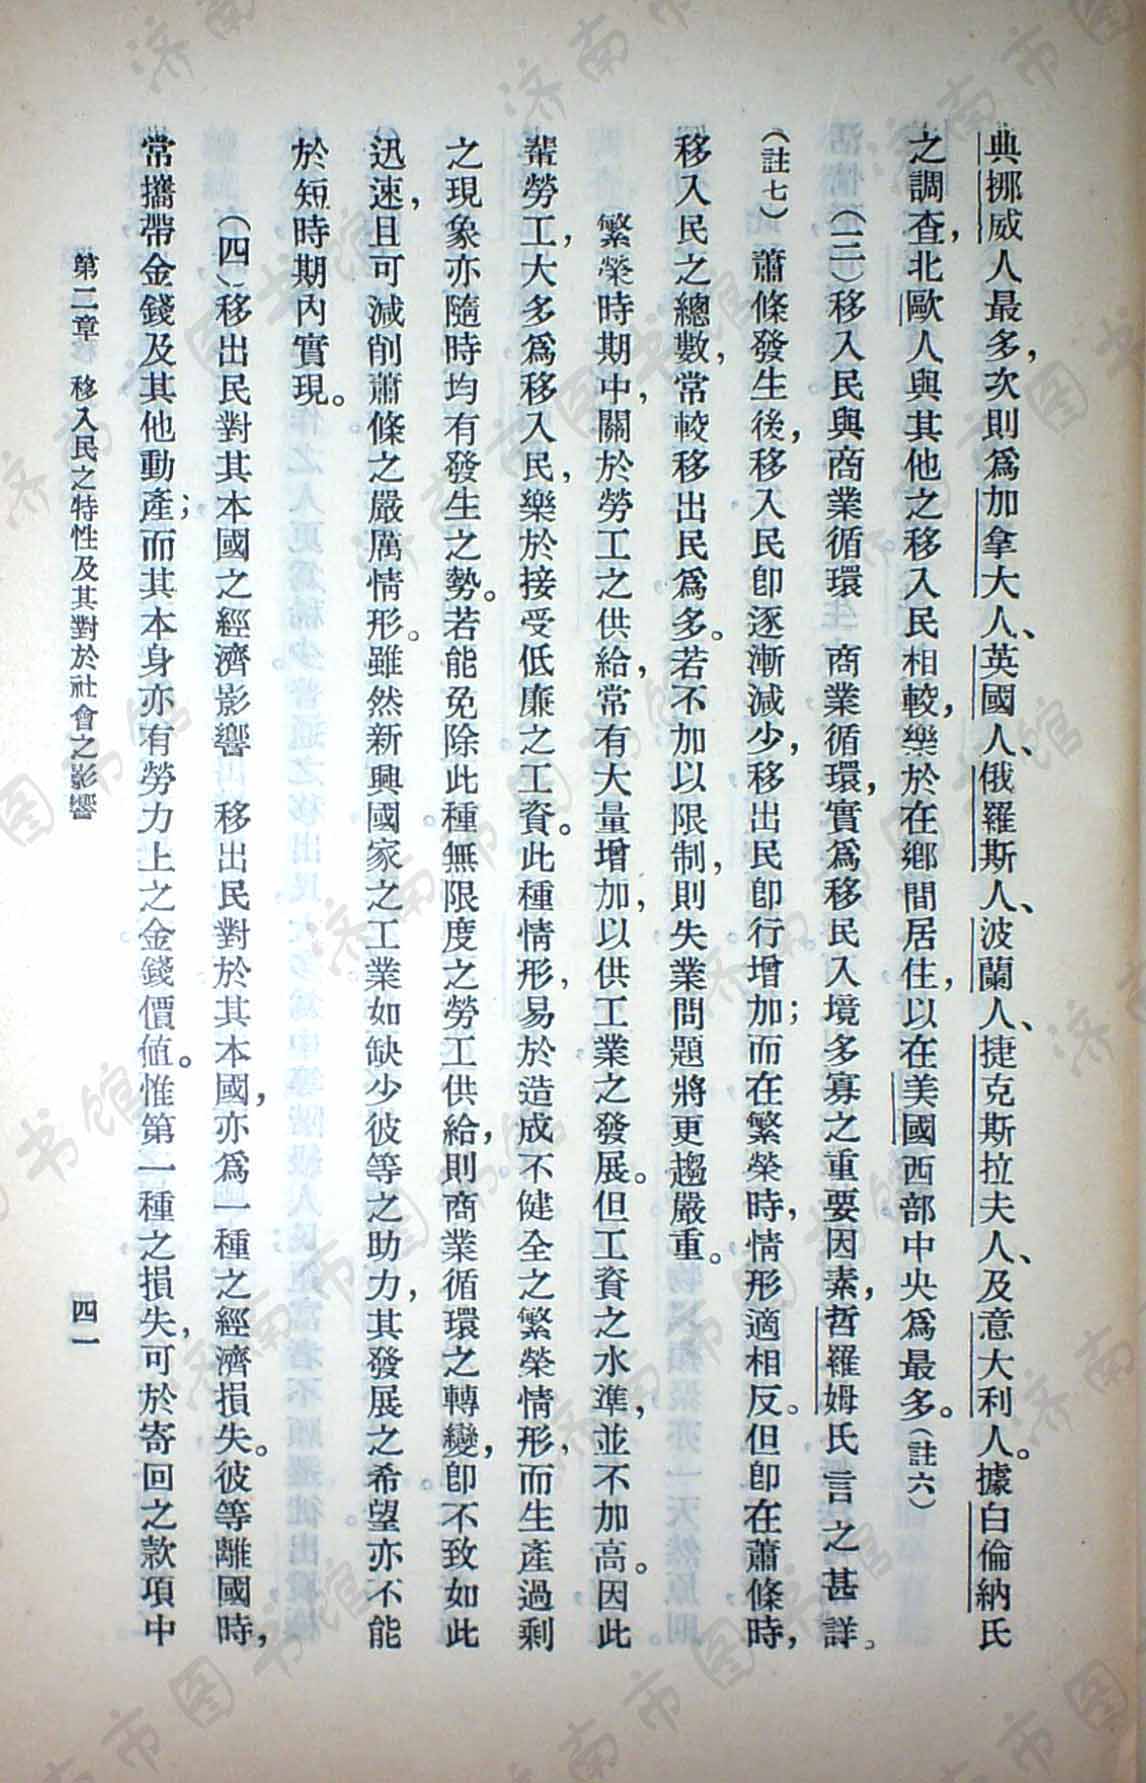 典挪威人最多，次則爲加拿大人、英國人、俄羅斯人、波蘭人、捷克斯拉夫人、及意大利人。據白倫納氏
之調查，北歐人與其他之移入民相較，樂於在鄕間居住，以在美國西部中央爲最多。（註六）
（三）移入民與商業循環　商業循環，實爲移民入境多寡之重要因素，哲羅姆氏言之甚詳。
（註七）蕭條發生後，移入民卽逐漸減少，移出民卽行增加；而在繁榮時，情形適相反。但卽在蕭條時，
移入民之總數，常較移出民爲多。若不加以限制，則失業問題將更趨嚴重。
繁榮時期中，關於勞工之供給，常有大量增加，以供工業之發展。但工資之水準，並不加高。因此
輩勞工，大多爲移入民，樂於接受低廉之工資。此種情形，易於造成不健全之繁榮情形，而生產過剩
之現象亦隨時均有發生之勢。若能免除此種無限度之勞工供給，則商業循環之轉變，卽不致如此
迅速，且可減削蕭條之嚴厲情形。雖然新興國家之工業如缺少彼等之助力，其發展之希望亦不能
於短時期內實現。
（四）移出民對其本國之經濟影響　移出民對於其本國，亦爲一種之經濟損失。彼等離國時，
常攜帶金錢及其他動產；而其本身亦有勞力上之金錢價值。惟第一種之損失，可於寄回之款項中
第二章　移入民之特性及其對於社會之影響
四一
济南市图书馆